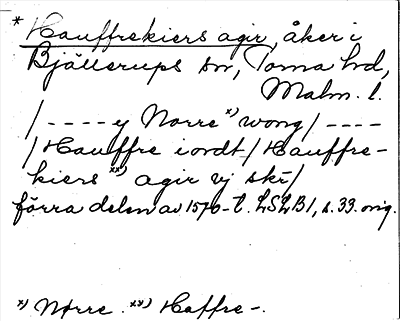 * Hauffrekiers agir, åker i
Bjällerups sn, Torna hd,
Malm. l.
/ - - - - y Norre *) wong / - - - -
/ Hauffre iordt / Hauffre-
kiers **) agir vj skr /
förra delen av 1570-t. LSLB1, s. 33. orig.
*) Nørre. **) Haffre-.